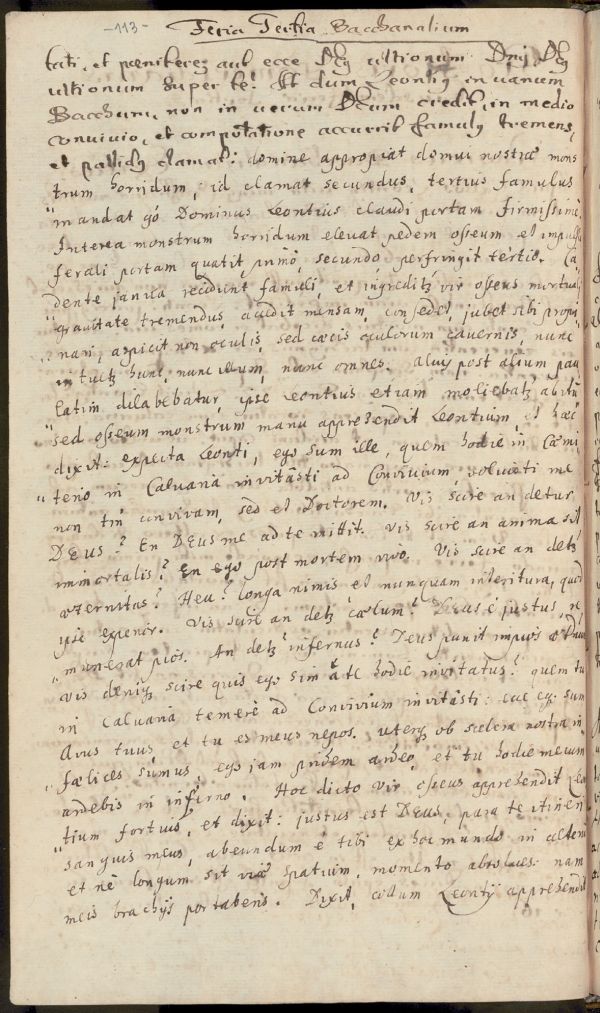 -113-
Feria Tertia Bacchanalium
tati, et pœniterez aut ecce Dey ultionum Dnq Dey
ultionum super te! Et dum Leontiq in vanum
Bacchum, non in verum Deum credit, in medio
convivio, et compotatione accurrit famulq tremens,
et pallidq clamat: domine appropiat domui nostræ mons
trum horridum, id clamat secundus, tertius famulus
mandat gó Dominus Leontius claudi portam firmissimè.
Interea monstrum horridum elevat pedem osseum et impulsu
ferali portam quatit primò, secundo perfringit tertiò. Ca
dente janua recidunt famuli, et ingreditz vir osseus mortuali
gravitate tremendus, accedit mensam, considet, jubet sibi propi
nari, aspicit non oculis, sed cæcis oculorum cavernis, nunc
intuetz hunc, nunc illum, nunc omnes. Aliq post alium pau
latim dilabebatur, ipse Leontius etiam moliebatz abitū
sed osseum monstrum manu apprehendit Leontium, et hæc
dixit: expecta Leonti, ego sum ille, quem hodie in Cæmi
terio in Calvaria invitâsti ad Convivium, voluisti me
non tm̄ convivam, sed et Doctorem. Vis scire an detur
DEus? En DEus me ad te mittit. vis scire an anima sit
immortalis? En ego post mortem vivo. Vis scire an detz
æternitas? Heu! longa nimis et nunquam interitura, quod
ipse experior. Vis scire an detz cælum? Deus ē justus, re
munerat pios. An detz infernus? Deus punit impios
vis deniqz scire quis ego sim à te hodie invitatus? quem tu
in Calvaria temerè ad Convivium invitâsti: ecce ego sum
Avus tuus, et tu es meus nepos. uterqz ob scelera nostra in
fælices sumus, ego jam pridem ardeo, et tu hodie mecum
ardebis in inferno. Hoc dicto vir osseus apprehendit Leon
tium fortius, et dixit: justus est DEus, para te itineri
sanguis meus, abeundum ē tibi ex hoc mundo in alterū
et nè longum sit viæ spatium, momento absolves nam
meis brachijs portaberis. Dixit, collum Leontij apprehendit